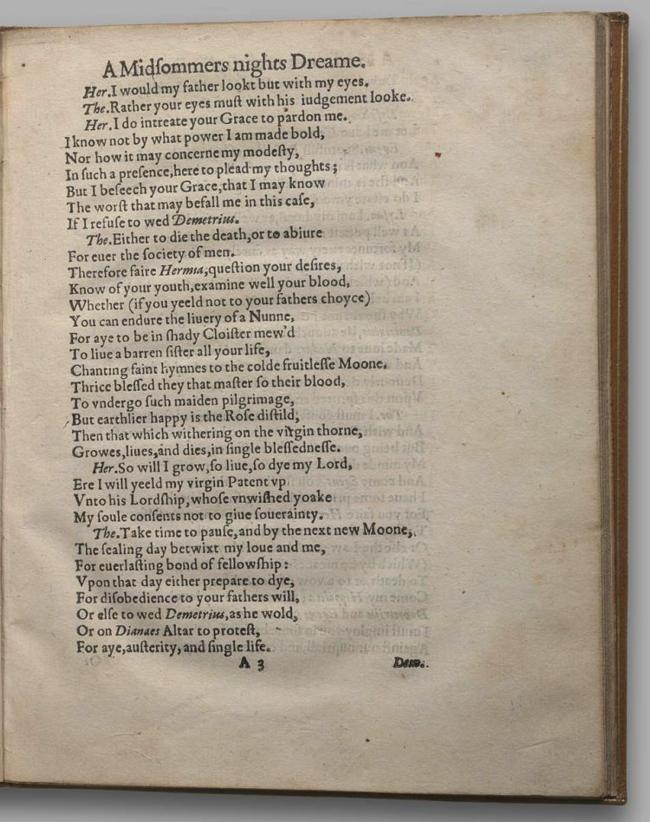 A Midſommers nights Dreame.
Her. I would my father lookt but with my eyes.
The. Rather your eyes muſt with his iudgement looke.
Her. I do intreate your Grace to pardon me.
I know not by what power I am made bold,
Nor how it may concerne my modeſty,
In ſuch a preſence, here to plead my thoughts;
But I beſeech your Grace, that I may know
The worſt that may befall me in this caſe,
If I refuſe to wed Demetrius.
The. Either to die the death, or to abiure
For euer the ſociety of men.
Therefore faire Hermia, queſtion your deſires,
Know of your youth, examine well your blood,
Whether (if you yeeld not to your fathers choyce)
You can endure the liuery of a Nunne,
For aye to be in ſhady Cloiſter mew'd
To liue a barren ſiſter all your life,
Chanting faint hymnes to the colde fruitleſſe Moone.
Thrice bleſſed they that maſter ſo their blood,
To vndergo ſuch maiden pilgrimage,
But earthlier happy is the Roſe diſtild,
Then that which withering on the virgin thorne,
Growes, liues, and dies, in ſingle bleſſedneſſe.
Her. So will I grow, ſo liue, ſo dye my Lord,
Ere I will yeeld my virgin Patent vp
Vnto his Lordſhip, whoſe vnwiſhed yoake
My ſoule conſents not to giue ſouerainty.
The. Take time to pauſe, and by the next new Moone,
The ſealing day betwixt my loue and me,
For euerlaſting bond of fellowſhip:
Vpon that day either prepare to dye,
For diſobedience to your fathers will,
Or elſe to wed Demetrius, as he wold,
Or on Dianaes Altar to proteſt,
For aye, auſterity, and ſingle life.
A 3 Dem.